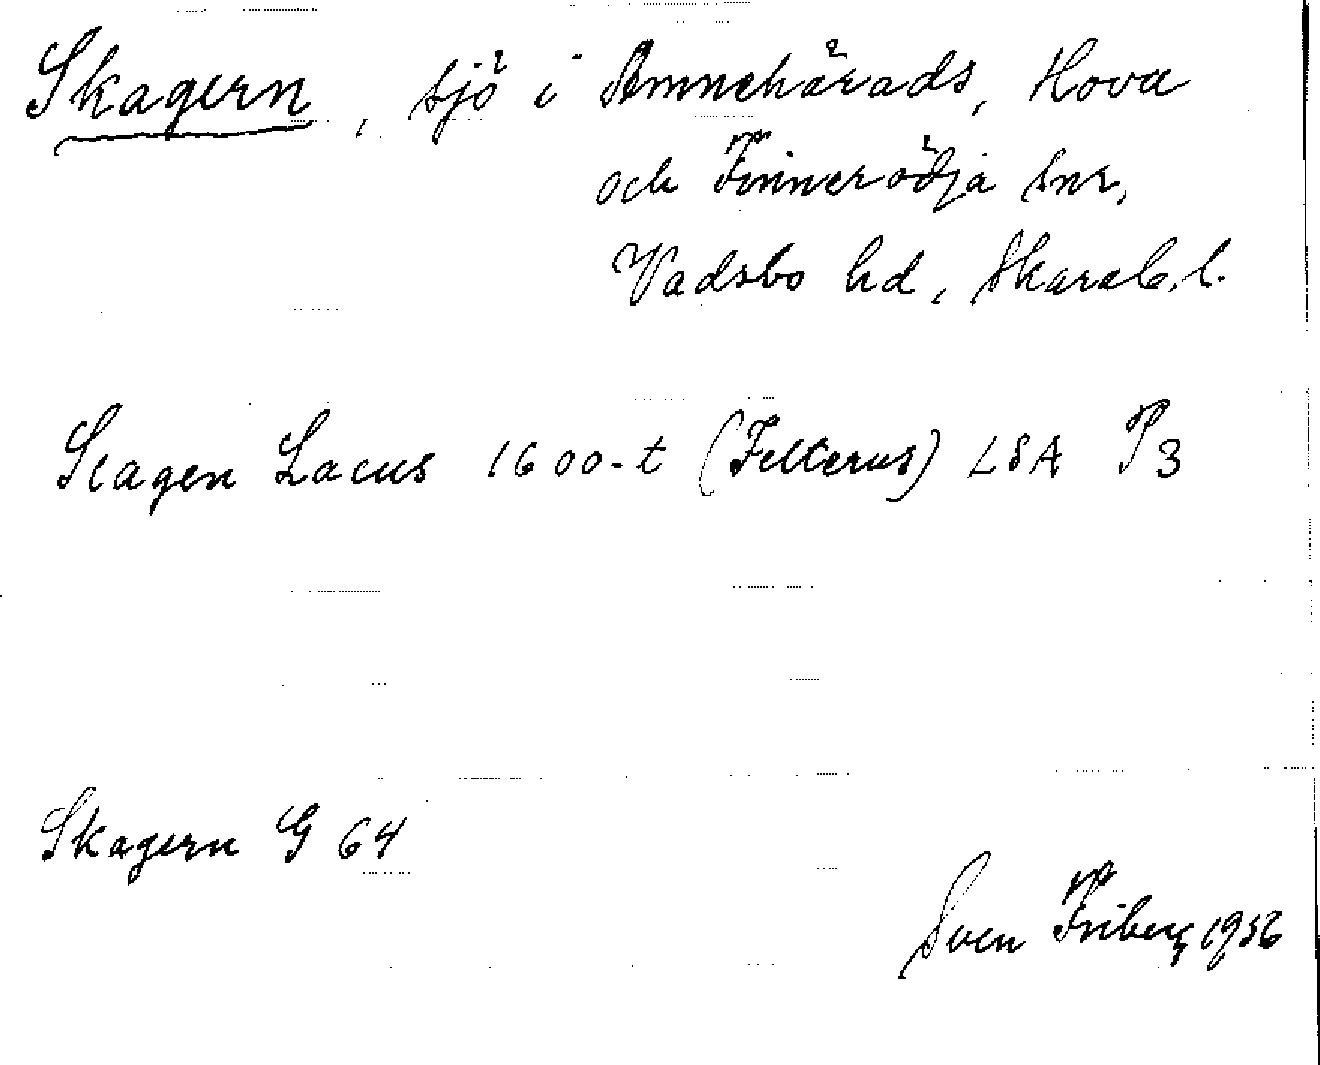 Skagern, sjö i Amnehärads, Hova
och Finnerödja snr,
Vadsbo hd, Skarab. l.
Slagen Lacus 1600-t (Felterus) LSA P3
Skagern G 64
Sven Friberg 1936